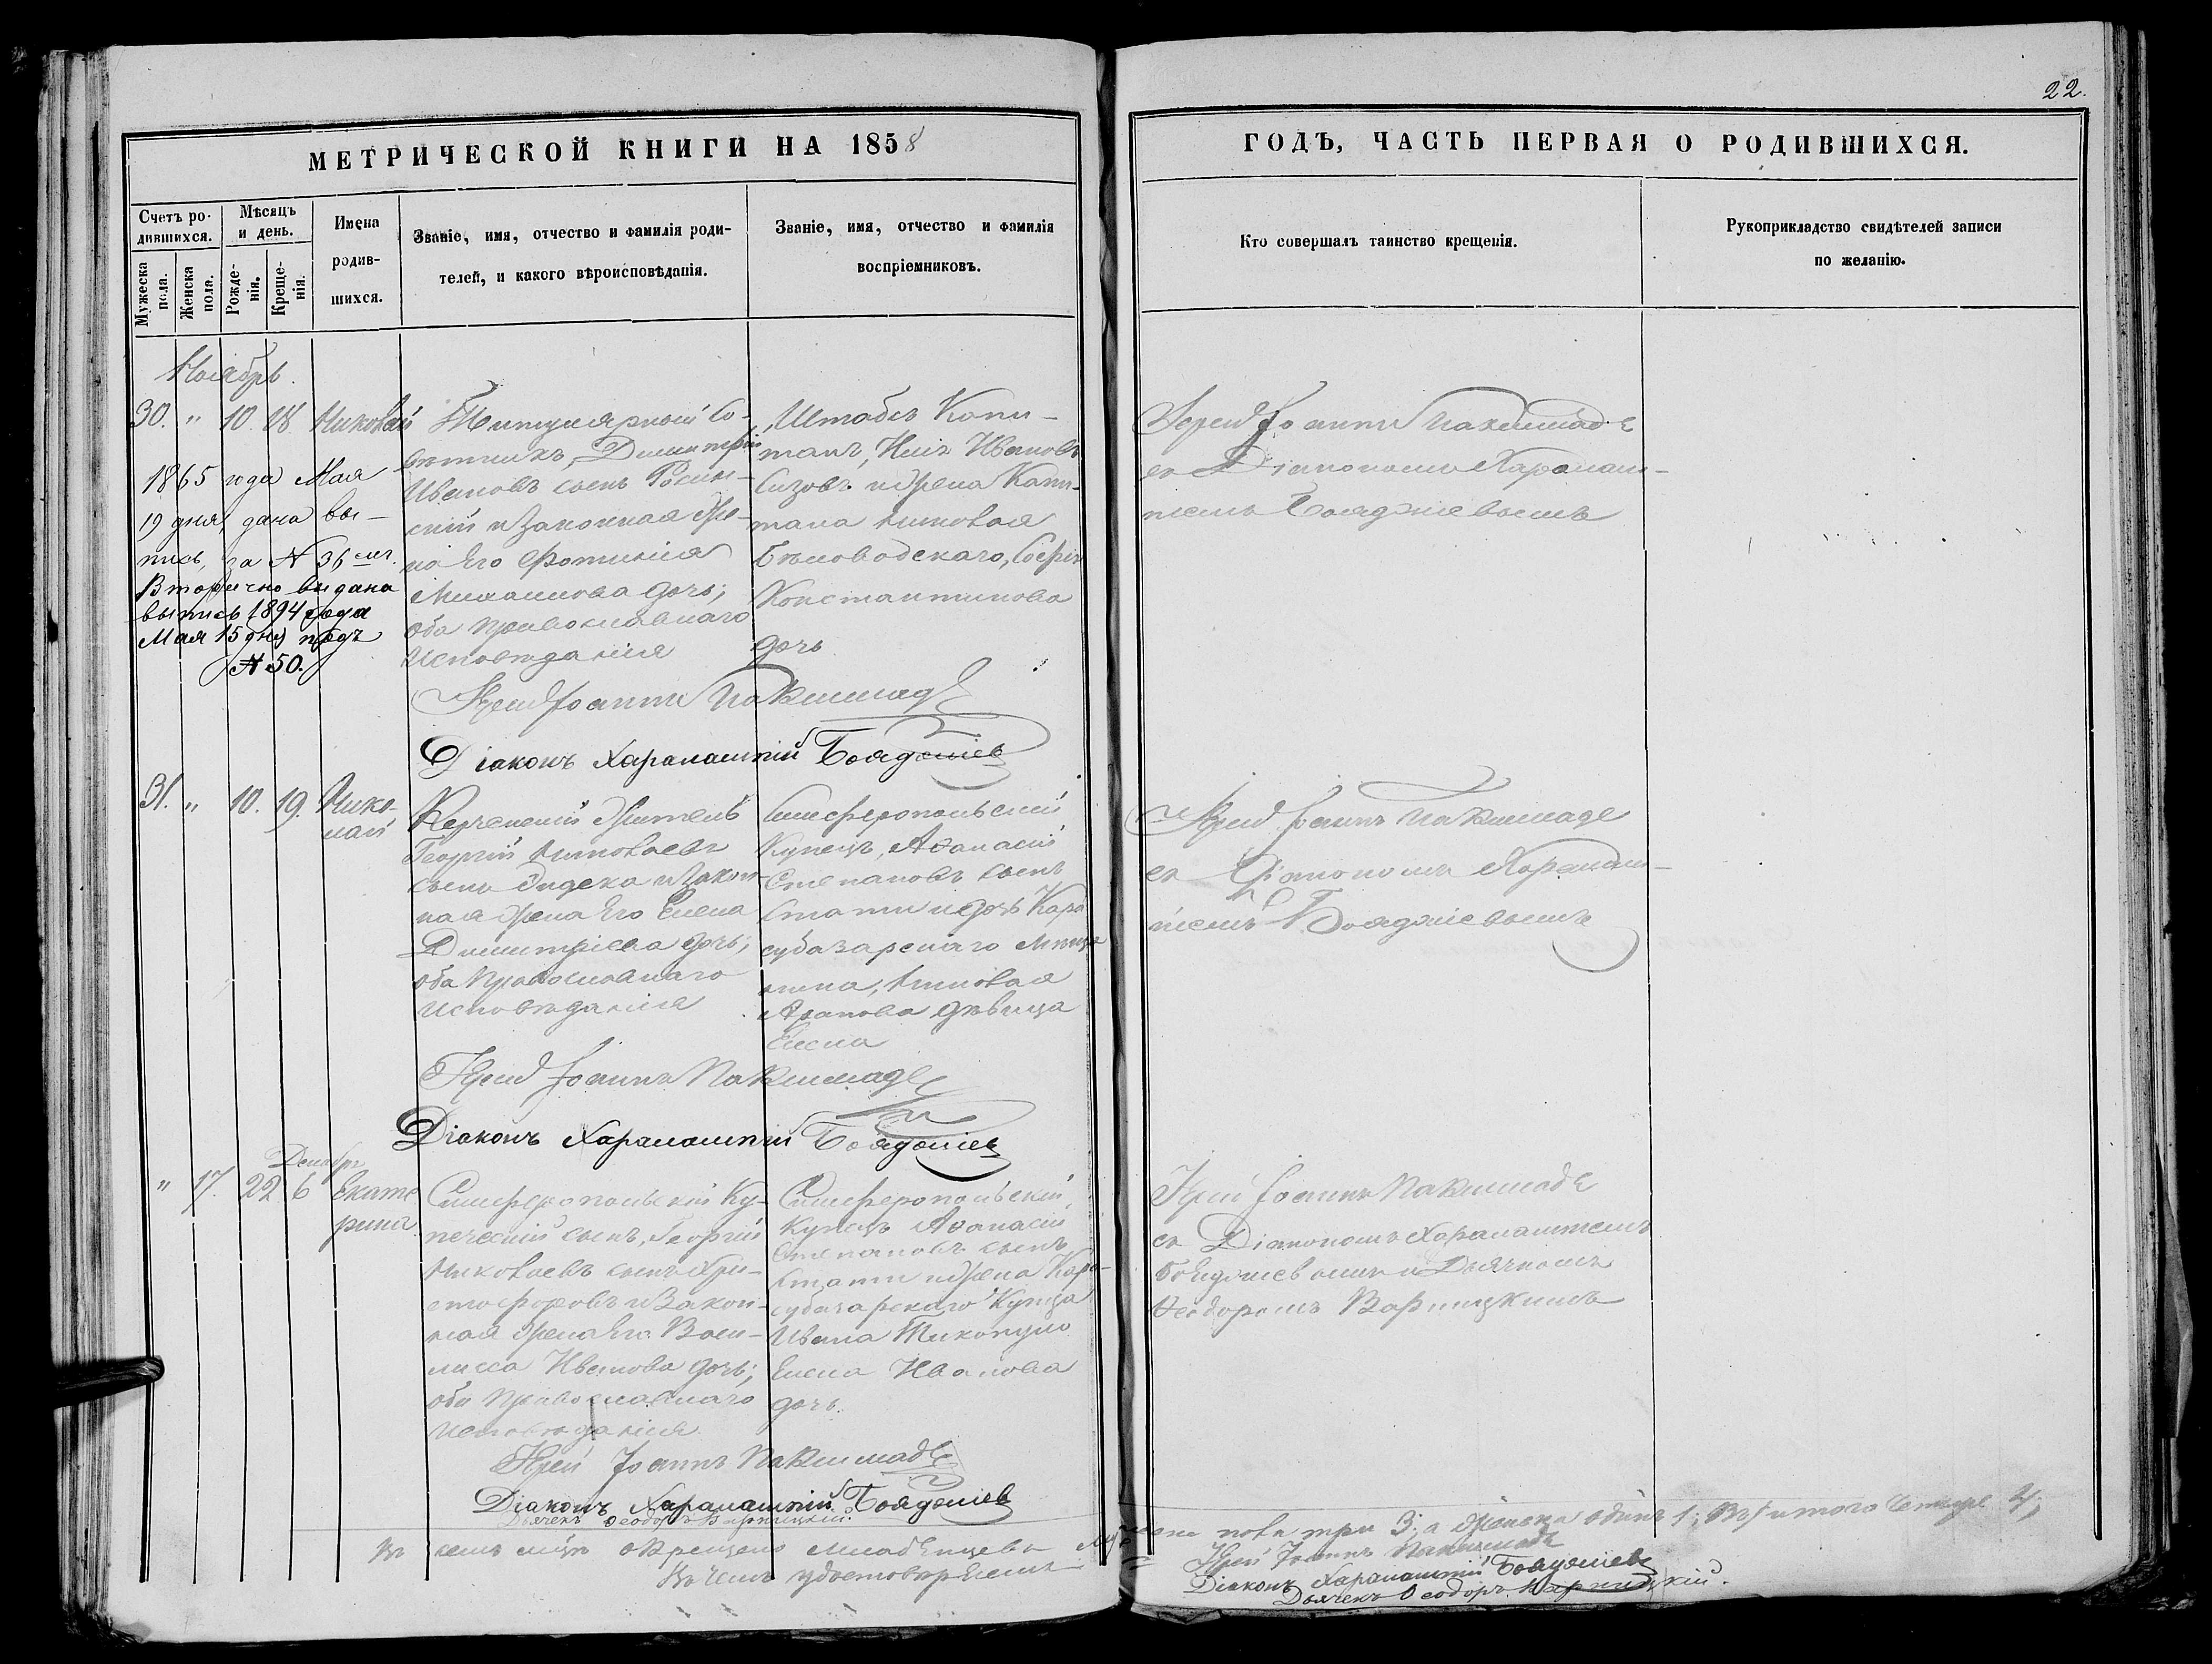 22.
МЕТРИЧЕСКОЙ КНИГИ НА 1858
ГОДЪ, ЧАСТЬ ПЕРВАЯ О РОДИВШИХСЯ.
Счетъ ро-
дившихся.
Мужеска
пола.
Женска
пола.
Мѣсяцъ
и день.
Рожде-
нія.
Креще-
нія.
Имена
родив-
шихся.
Званіе, имя, отчество и фамилія роди-
телей, и какого вѣроисповѣданія.
Званіе, имя, отчество и фамилія
воспріемниковъ.
Кто совершалъ таинство крещенія.
Рукоприкладство свидѣтелей записи
по желанію.
Ноябрь.
30. " 10. 18. Николай
1865 года Мая
19 дня, дана вы-
пись, за № 36
Вторично выдана
выпись 1894 года
Мая 15 дня подъ
№ 50.
Титулярный Со-
вѣтникъ, Димитрій
Ивановъ сынъ
и законная же-
на Его Фотинія
дочь;
оба православнаго
исповѣданія
Штабсъ Капи-
танъ, Ивановъ
Сизовъ и жена Капи-
тана Николая
Бѣловодскаго, Софія
Константинова
дочь
Іерей Іоаннъ Пакси­маде
съ Діакономъ Харалам-
піемъ Бояджіевымъ
Іерей Іоаннъ Паксимаде
Діаконъ Харалампій Бояджіев
31. " 10. 19. Нико-
лай
Керченскій Житель
Георгій Николаевъ
сынъ и закон-
ная жена Его Елена
Димитріева дочь;
оба Православнаго
исповѣданія
Симферопольскій
Купецъ, Аѳанасій
Степановъ сынъ
Стати и дочь Кара
субазарскаго
Николая
Арапова дѣвица
Елена
Іерей Іоаннъ Паксимаде
съ Діакономъ Харалам-
піемъ Бояджіевымъ
Іерей Іоаннъ Паксимаде
Діаконъ Харалампій Бояджіев
Декабрь
" 17. 22 6 Екате
рина
Симферопольскій Ку-
печескій сынъ, Георгій
Николаевъ сынъ Хри-
стофоровъ и закон-
ная жена Его Васи-
лисса Иванова дочь;
оба Православнаго
исповѣданія
Симферопольскій
Купецъ Аѳанасій
Степановъ сынъ
Стати и жена Кара-
субазарскаго Купца
Ивана Тикопуло
Елена Иванова
дочь.
Іерей Іоаннъ Паксимаде
съ Діакономъ Харалампіемъ
Бояджіевымъ и Дьячкомъ
Ѳеодоромъ Варницкимъ
Іерей Іоаннъ Паксимаде
Діаконъ Харалампій Бояджіев
Дьячекъ Ѳеодоръ Варницкій.
Въ семъ м­цѣ окрещено младенцевъ мужеска пола три 3; а женска одинъ 1; итого четыре 4;
Въ чемъ удостовѣряемъ
Іерей Іоаннъ Паксимаде
Діаконъ Харалампій Бояджіевъ
Дьячекъ Ѳеодоръ Варницкій.